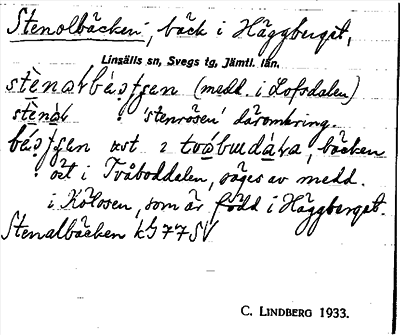 Stenolbäcken, bäck i Häggberget,
Linsälls sn, Svegs tg, Jämtl. län.
(medd. i Lofsdalen)
'stenrösen' däromkring.
bäcken
öst i Tvåboddalen, säges av medd.
i Kölosen, som är född i Häggberget.
Stenalbäcken kG 77 SV
C. LINDBERG 1933.